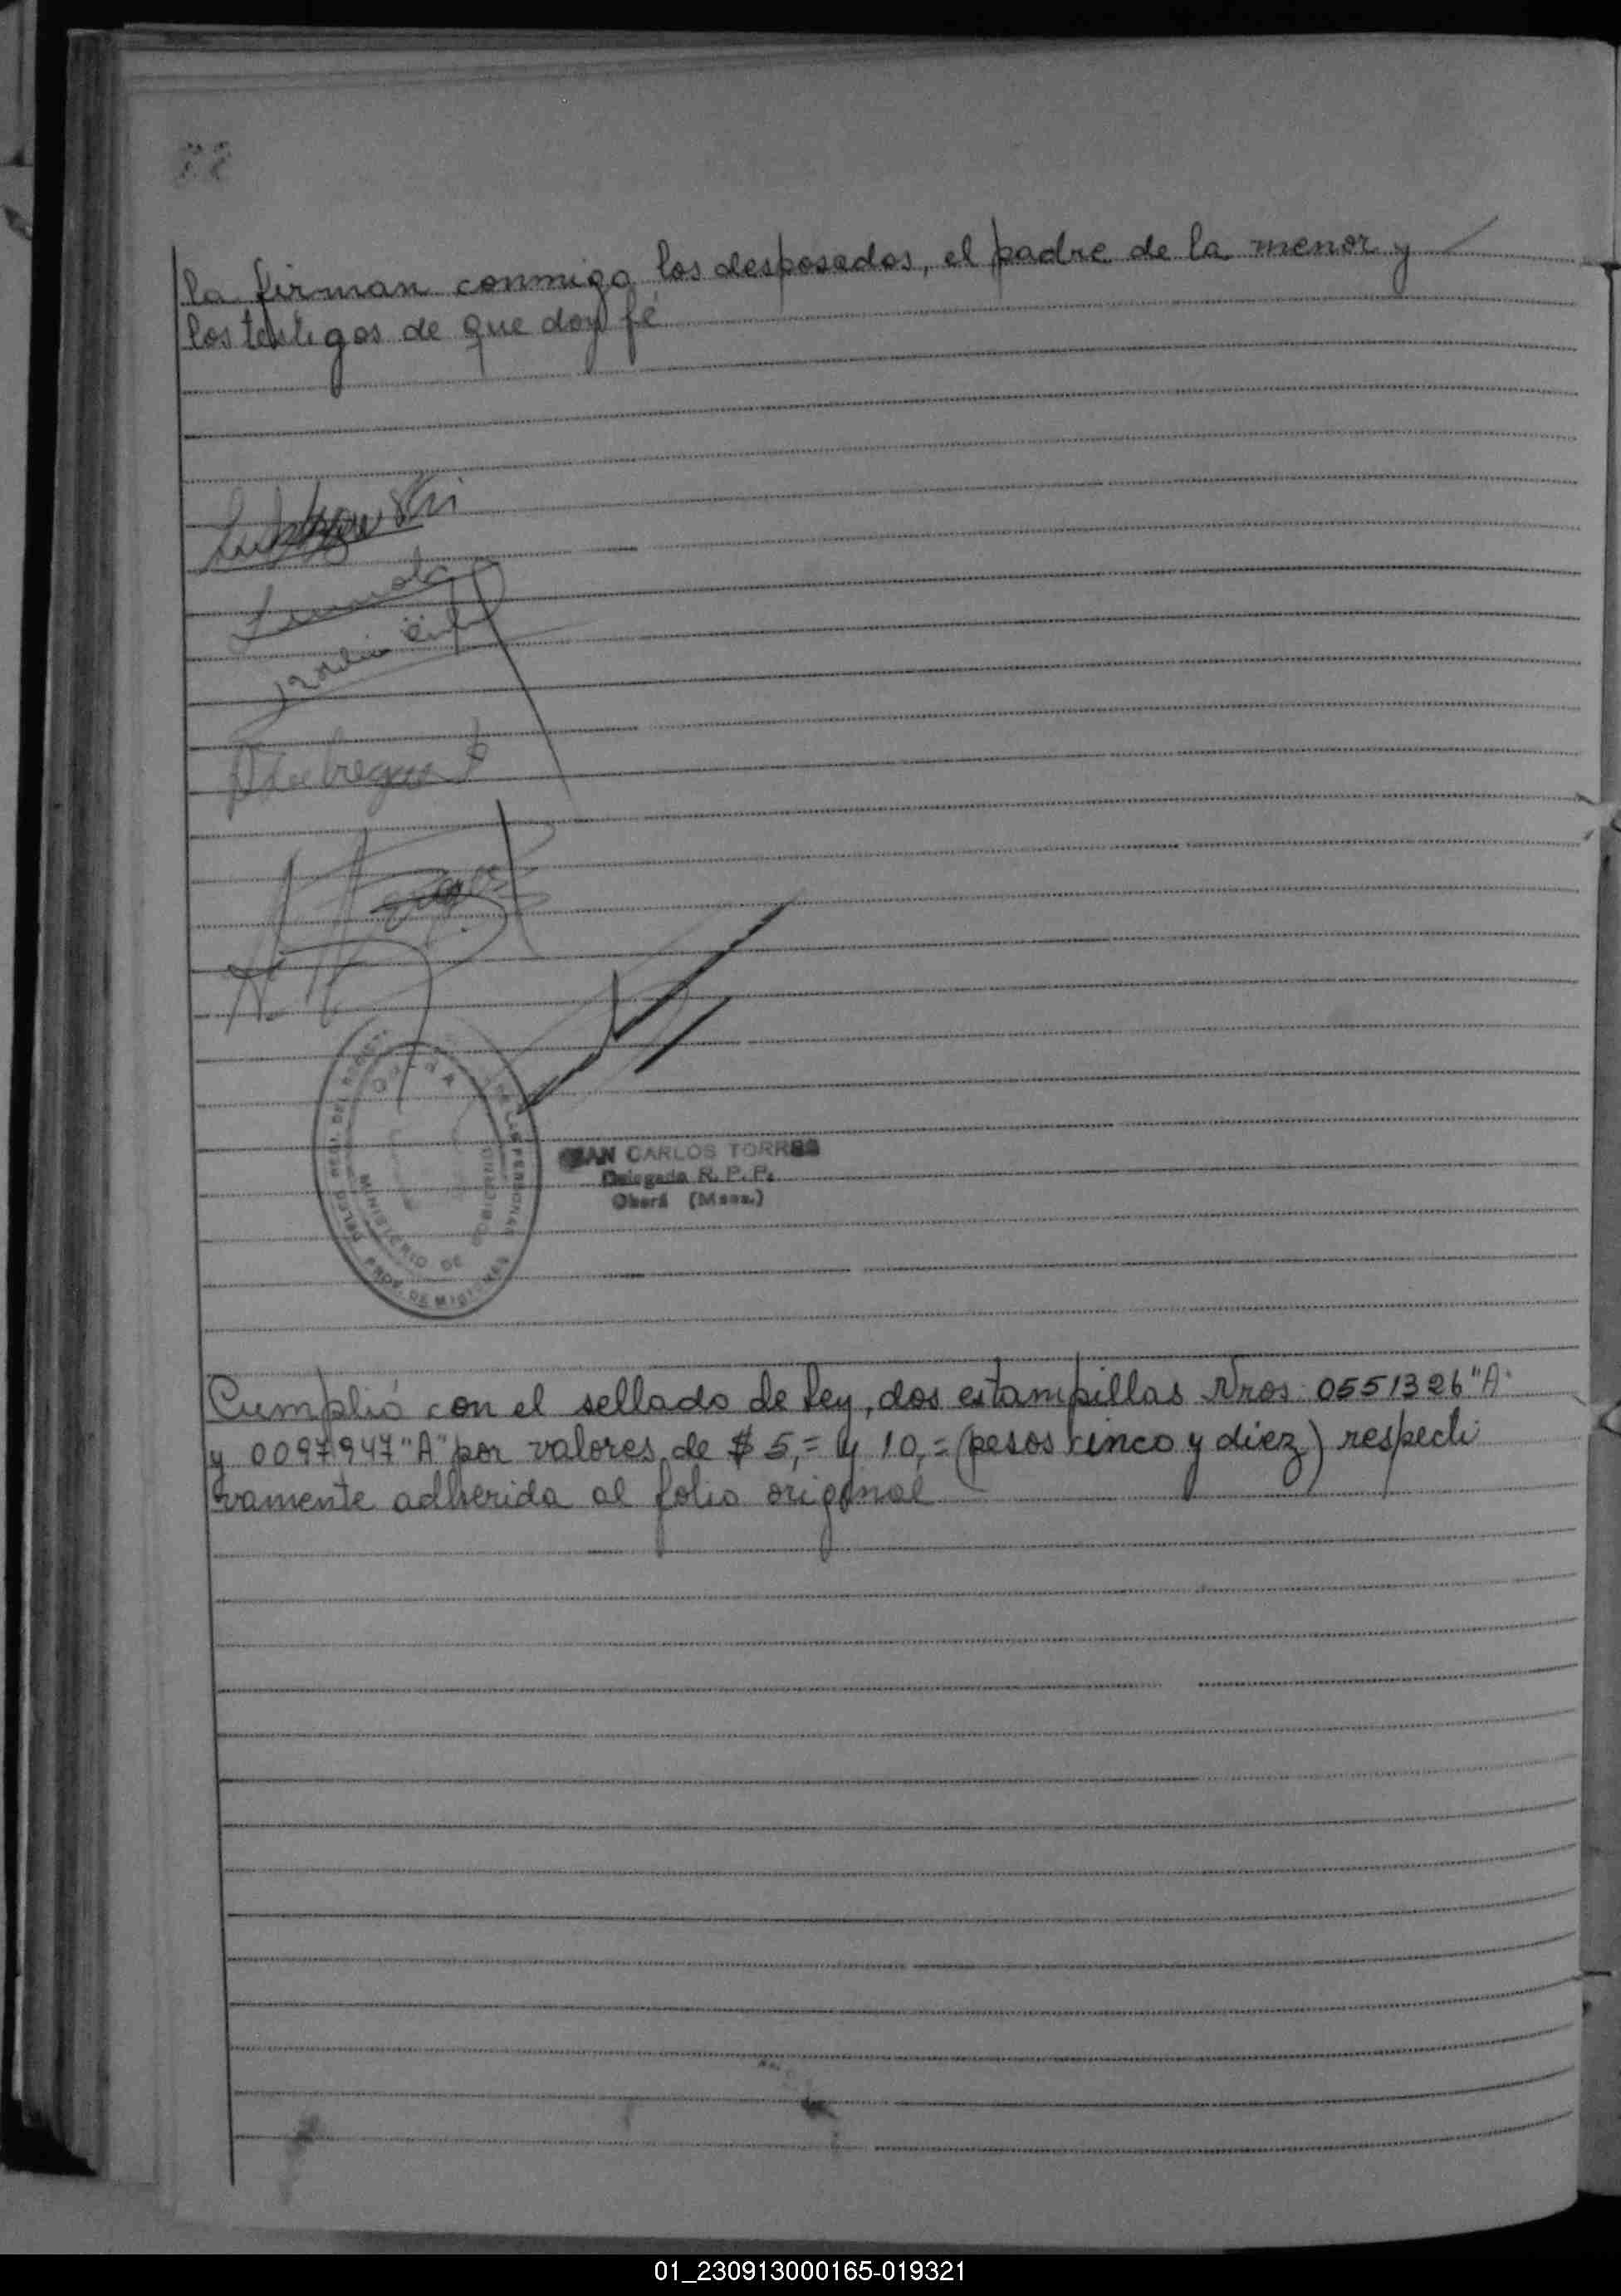 la firman conmigo los desposados, el padre de la menor y
los testigos de que doy fé
ORRAS
JUAN CARLOS TORRES
Delegado R. P. P.
Oberá (Mnes.)
MINISTERIO DE GOBIERNO
PROV. DE MISIONES
Cumplió con el sellado de ley, dos estampillas Nros. 0551326 "A"
y 0097947 "A" por valores de $ 5,= y 10,= (pesos cinco y diez) respecti
vamente adherida al folio original
01_230913000165-019321